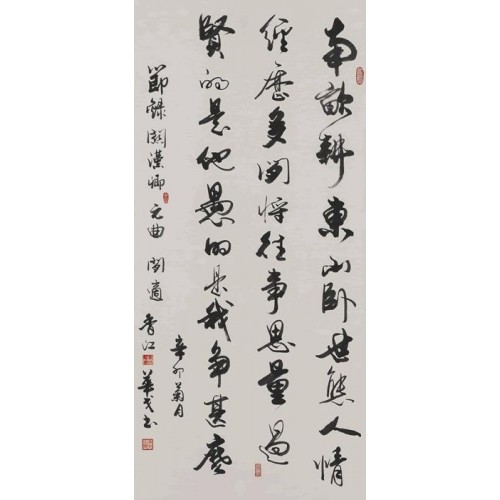 南畝耕東山卧世態人情
經歷多閑將往事思量過
賢的是他愚的是我争甚麽
辛卯菊月
節錄關漢卿元曲閑適
香江
華戈書